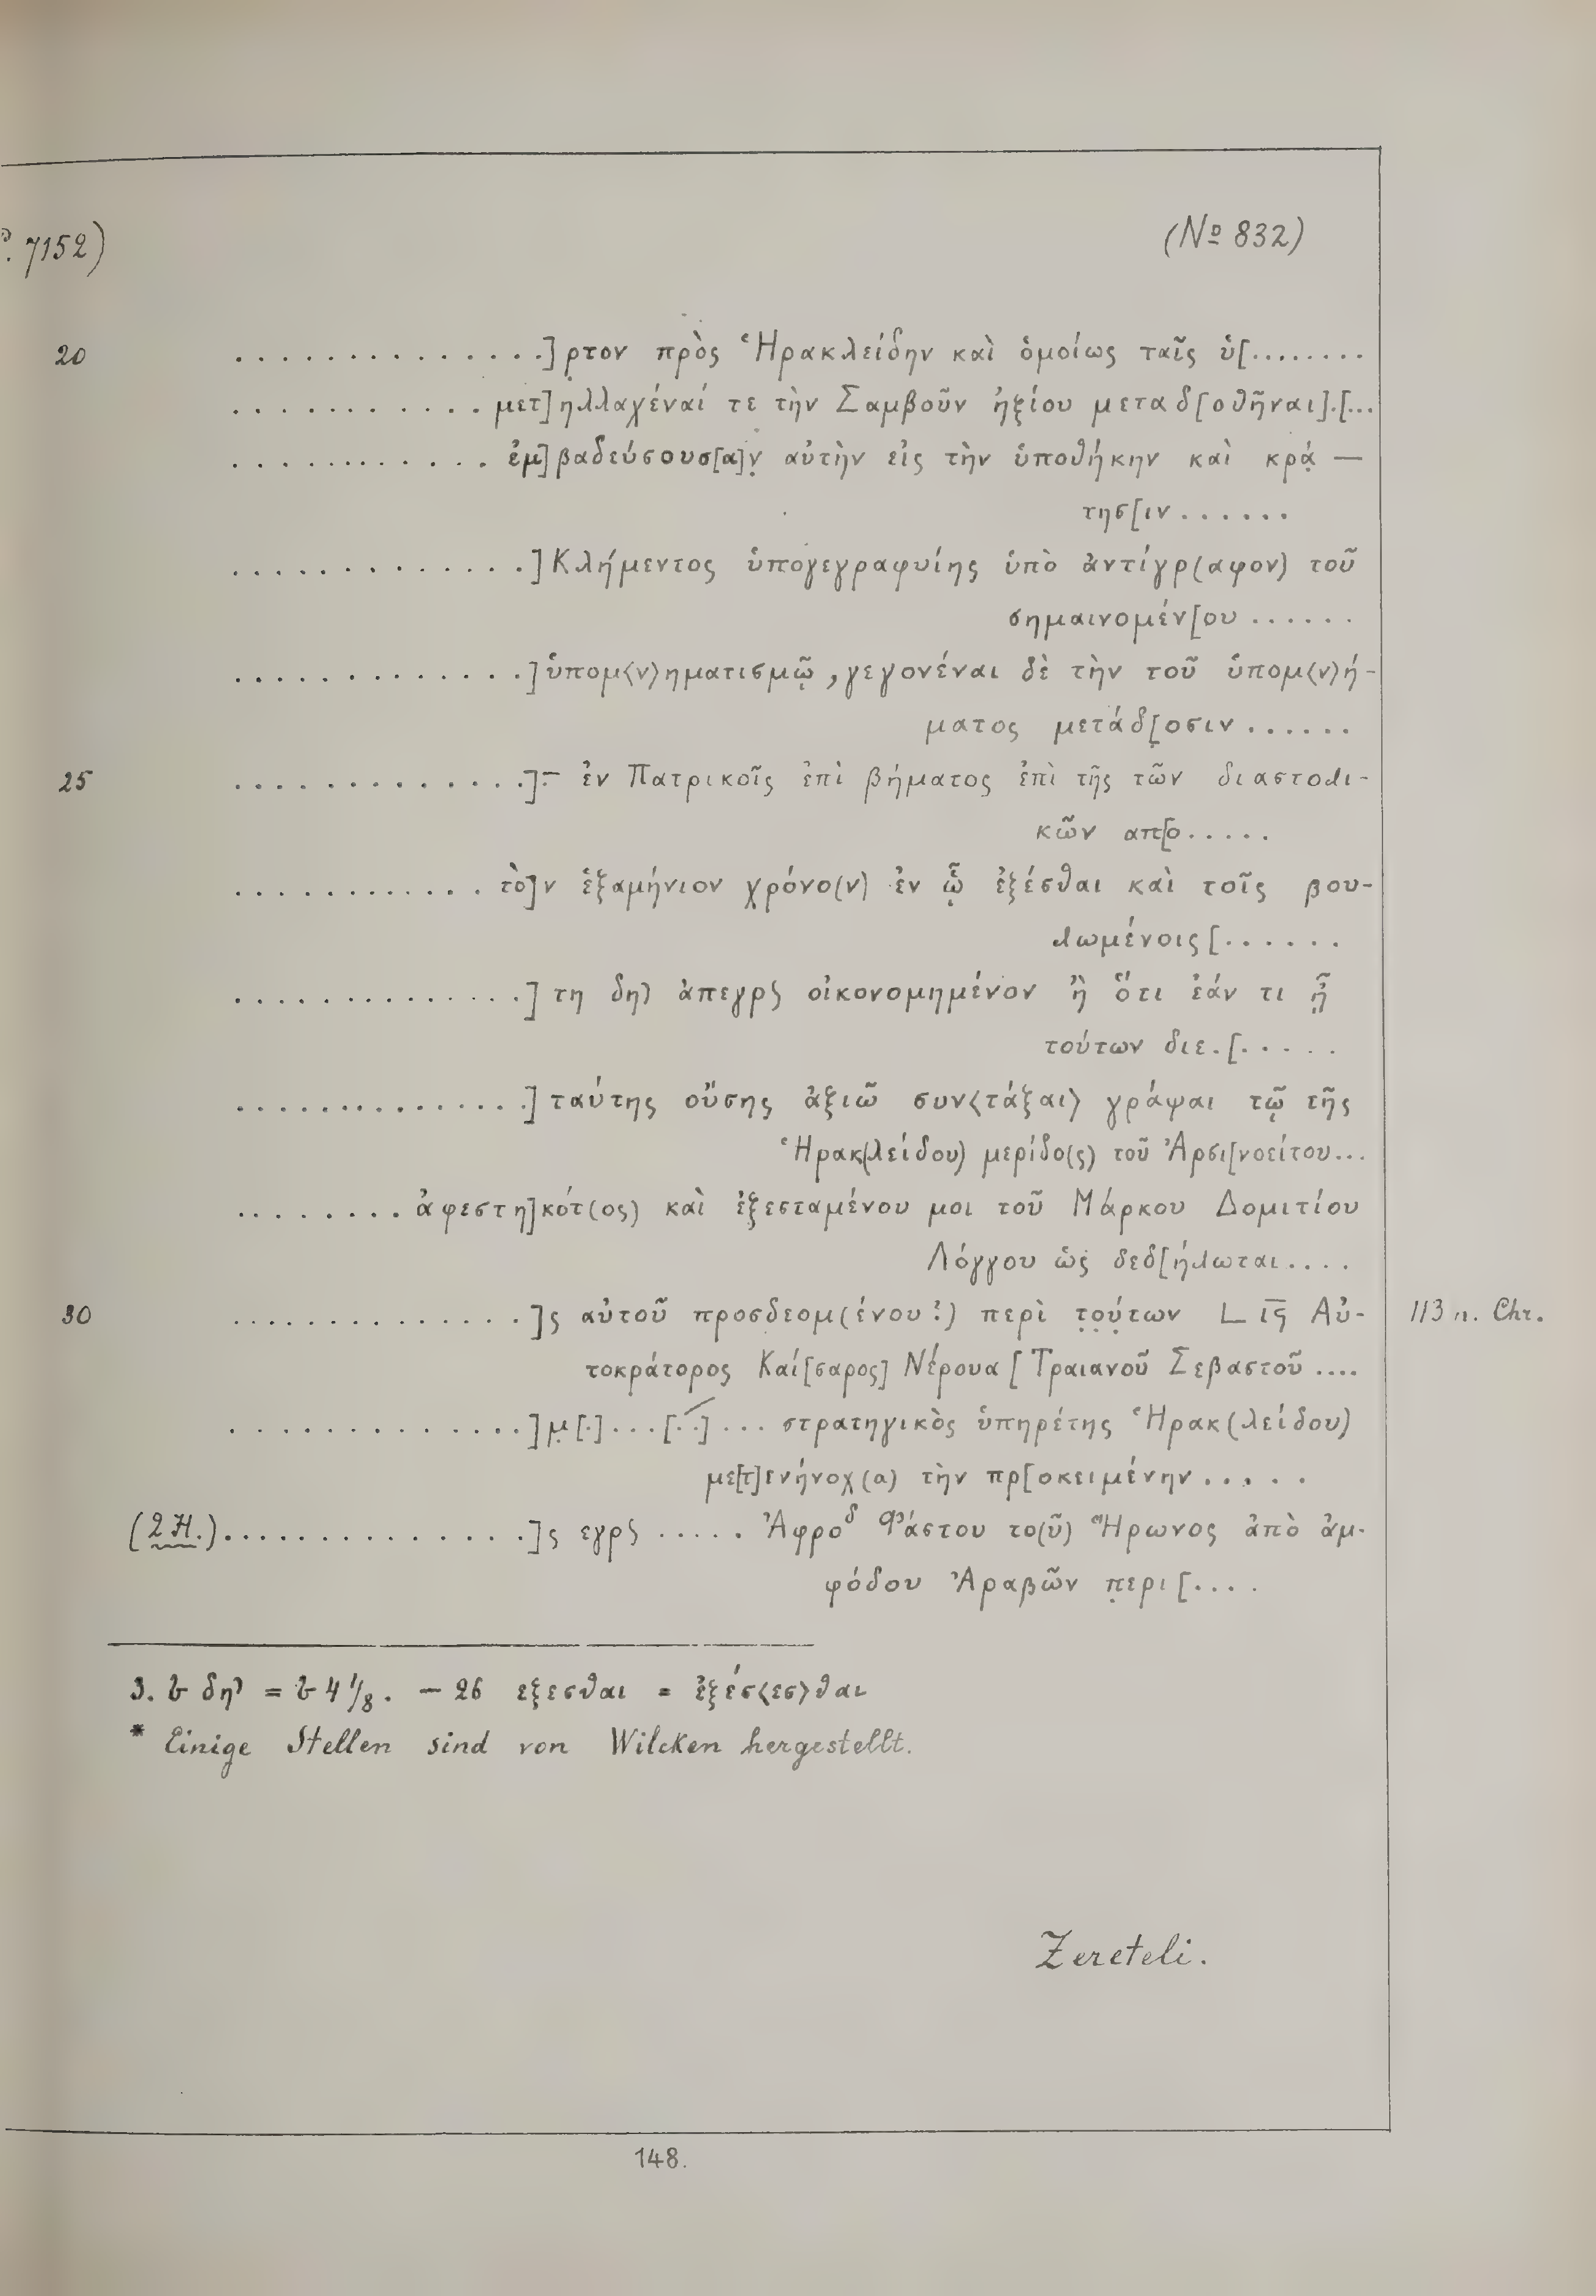 P. 7152)
(No 832)
20 . . . . . . . . . . . . . .]ρτον πρὸς Ἡρακλείδην καὶ ὁμοίως ταῖς ὑ[........
. . . . . . . . . . . μετ]ηλλαχέναί τε τὴν Σαμβοῦν ἠξίου μεταδ[οθῆναι].[...
. . . . . . . . . . . . ἐμ]βαδεύσουσ[α]ν̣ αὐτὴν εἰς τὴν ὑποθήκην καὶ κρά̣—
τησ[ιν . . . . . .
. . . . . . . . . . . . . .]Κλήμεντος ὑπογεγραφυίης ὑπὸ ἀντίγρ(αφον) τοῦ
σημαινομέν[ου . . . . . .
. . . . . . . . . . . . . .]ὑπομ⟨ν⟩ηματισμῷ, γεγονέναι δὲ τὴν τοῦ ὑπομ⟨ν⟩ή-
ματος μετάδ̣[οσιν . . . . . .
25 . . . . . . . . . . . . . .]- ἐν Πατρικοῖς ἐπὶ βήματος ἐπὶ τῆς τῶν διαστολι-
κῶν απ[ο . . . . .
. . . . . . . . . . . . τὸ]ν ἑξαμήνιον χρόνο(ν) ἐν ᾧ ἐξέσθαι καὶ τοῖς βου-
λωμένοις [ . . . . . .
. . . . . . . . . . . . . .] τη δη) ἀπεγρς οἰκονομημένον ἢ ὅτι ἐάν τι ᾖ
τούτων διε.[ . . . . .
. . . . . . . . . . . . . .] ταύτης οὔσης ἀξιῶ συν⟨τάξαι⟩ γράψαι τῷ τῆς
Ἡρακ(λείδου) μερίδο(ς) τοῦ Ἀρσι[νοείτου...
. . . . . . . . ἀφεστη]κότ(ος) καὶ ἐξεσταμένου μοι τοῦ Μάρκου Δομιτίου
Λόγγου ὡς δεδ[ήλωται . . . .
30 . . . . . . . . . . . . . .]ς αὐτοῦ προσδεομ(ένου?) περὶ τ̣ο̣ύ̣των L ιϛ Αὐ-
113 n. Chr.
τοκράτορος Καί[σαρος] Νέρουα [Τραιανοῦ Σεβαστοῦ ....
. . . . . . . . . . . . . .]μ̣[.]...[..]... στρατηγικὸς ὑπηρέτης Ἡρακ(λείδου)
με[τ]ενήνοχ(α) τὴν πρ[οκειμένην . . . . .
(2 H.) . . . . . . . . . . . . . .]ς εγρς . . . . . Ἀφροδ Φάστου το(ῦ) Ἥρωνος ἀπὸ ἀμ-
φόδου Ἀραβῶν π̣ερι[ . . . .
3. δη) = 4 1/8. — 26 εξεσθαι = ἐξέσ⟨εσ⟩θαι
* Einige Stellen sind von Wilcken hergestellt.
Zereteli.
148.